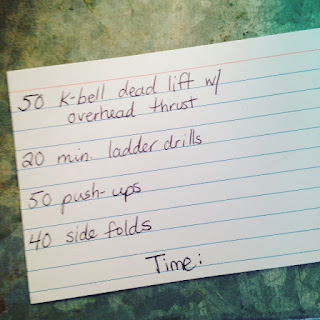 50 K-bell dead lift w/
overhead thrust
20 min. ladder drills
50 push-ups
40 side folds
Time: